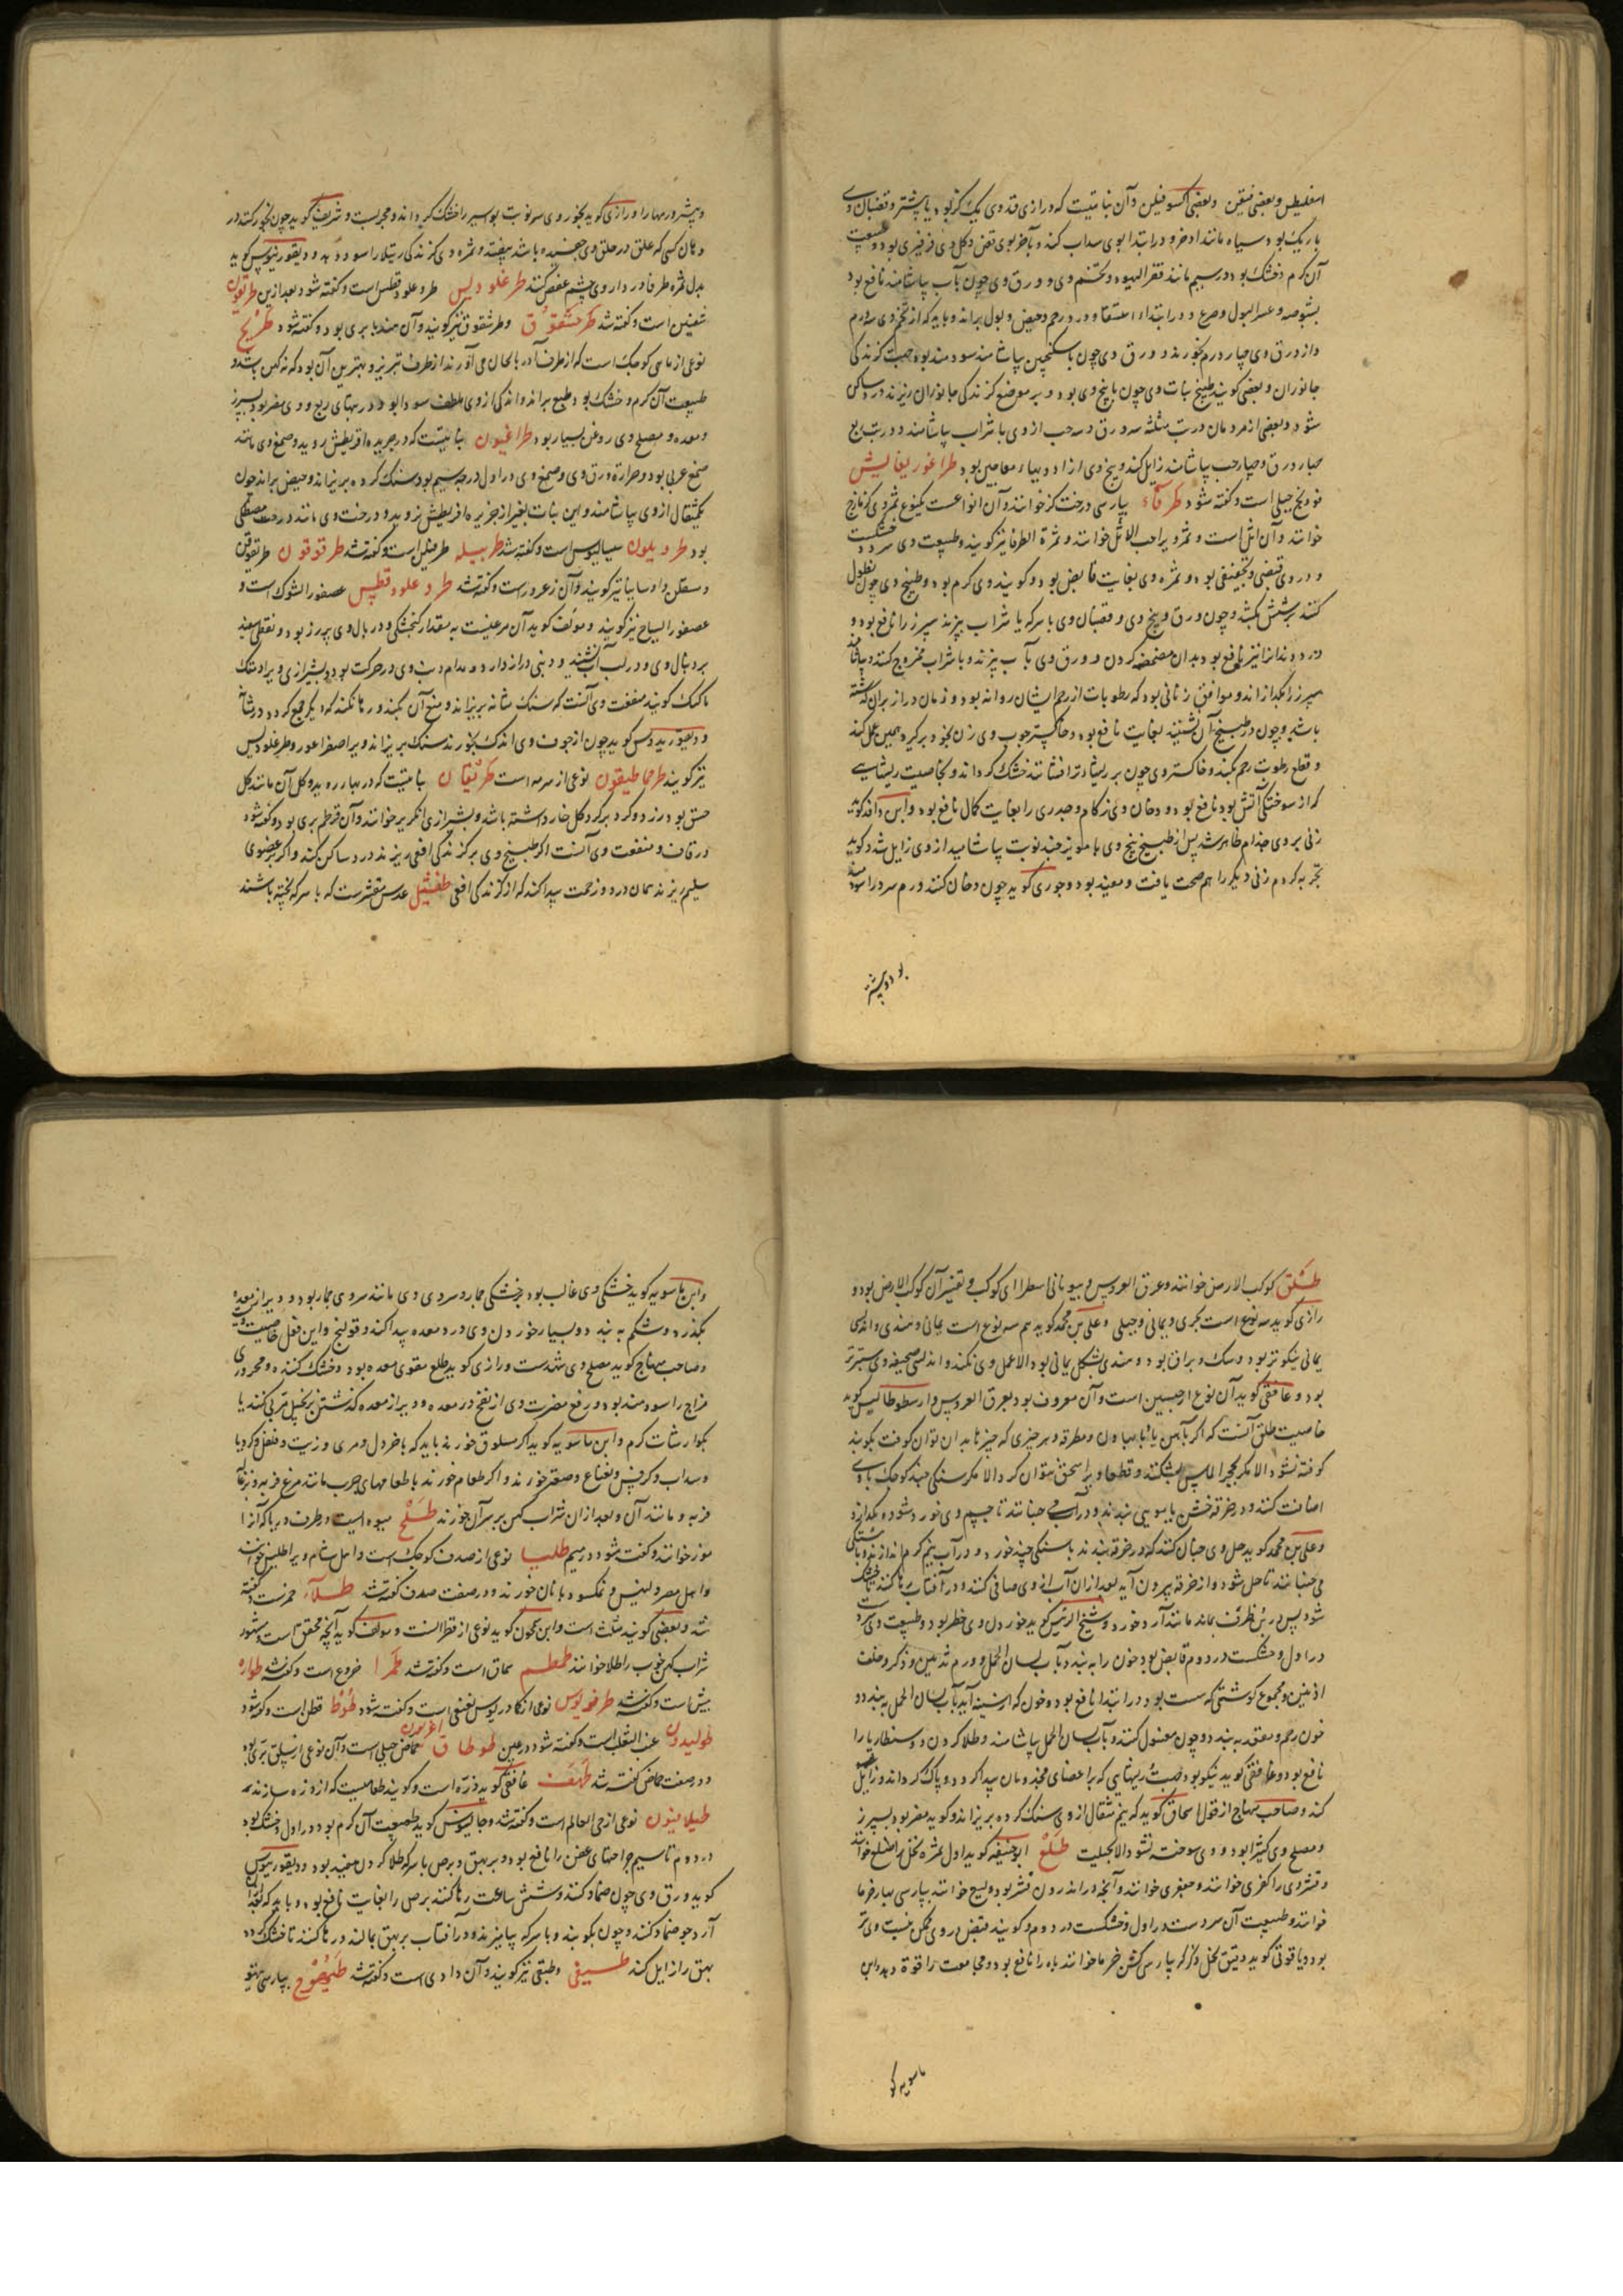 اسفلیطس و بعضی فیقن و بعضی اکسوفیلن و آن نباتیست که درازی قد وی یک گز بود یا بیشتر و قضبان وی
باریک بود و سیاه مانند اذخر و در ابتدا بوی سداب کند و بآخر بوی تعفن و کل وی فرفیری بود و طبیعت
آن گرم و خشک بود در سیم مانند قفر الیهود و تخم وی و ورق وی چون بآب بیاشامند نافع بود
بشوصه و عسر البول و صرع و در ابتداء استسقا و درد رحم و حیض و بول براند و باید که از تخم وی سه درم
و از ورق وی چهار درم بخورند و ورق وی چون با سکنجبین بیاشامند سودمند بود جهت گزندگی
جانوران و بعضی گویند طبیخ نبات وی چون با بیخ وی بود و بر موضع گزندگی جانوران ریزند درد ساکن
شود و بعضی از مردمان در تب مثلثه سه ورق و سه حب از وی با شراب بیاشامند و در تب ربع
چهار ورق و چهار حب بیاشامند زایل کند و بیخ وی از ادویهاء معاجین بود طراغوریغانیش
فودنج جبلی است و گفته شود طرفاء بپارسی درخت گز خوانند و آن انواعست یکنوع ثمر وی گزمازج
خوانند و آن اثل است و ثمر ویرا حب الاثل خوانند و ثمرة الطرفا نیز گویند و طبیعت وی سرد و خشکست
و در وی قبضی و تجفیفی بود و ثمره وی بغایت قابض بود و گویند وی گرم بود و طبیخ وی چون نطول
کنند بر شپش بکشد و چون ورق و بیخ وی و قضبان وی با سرکه یا شراب بپزند سپرز را نافع بود و
درد دندانرا نیز نافع بود بدان مضمضه کردن و ورق وی بآب بپزند و با شراب ممزوج کنند و بیاشامند
سپرز را بگدازاند و موافق زنانی بود که رطوبات از رحم ایشان روانه بود و زمان دراز بر آن گذشته
باشد و چون در طبیخ آن نشینند بغایت نافع بود و خاکستر چوب وی زن بخود برگیرد همین عمل کند
و قطع رطوبت رحم بکند و خاکستر وی چون بر ریشهاء تر افشانند خشک گرداند و بخاصیت ریشهایی
که از سوختگی آتش بود نافع بود و دخان وی زکام و جدری را بغایت کمال نافع بود و ابن وافد گوید
زنی بر وی جذام ظاهر شد پس از طبیخ بیخ وی با مویز چند نوبت بیاشامید از وی زایل شد و گوید
تجربه کردم زنی دیگر را هم صحت یافت و مفید بود و جوری گوید چون دخان کنند ورم سرد را سودمند
بود و بیشتر
و بیشتر ورمها را و رازی گوید بخور وی سه نوبت بواسیر را خشک گرداند و مجرب است و شریف گوید چون بخور کنند در
دهان کسی که علق در حلق وی چسبیده باشد بیفتد و ثمره وی گزندگی رتیلا را سود دهد و دیقوریدوس گوید
بدل ثمره طرفا در داروی چشم عفص کنند طرغلودیس طروغلودقطس است و گفته شود بعد ازین طریقون
شفنین است و گفته شد طرخشقوق و طرشقوق نیز گویند و آن هندبا بری بود و گفته شود طریخ
نوعی از ماهی کوچک است که از طرف آذربایجان می آورند از طرف تبریز و بهترین آن بود که نه کهن باشد و
طبیعت آن گرم و خشک بود و طبع براند و اندکی از وی ملطف سودا بود و در تبهای ربع و وی مضر بود بسپرز
و معده و مصلح وی روغن بسیار بود طراغیون نباتیست که در جزیره اقریطش روید و صمغ وی مانند
صمغ عربی بود و حرارة ورق وی و صمغ وی در اول درجه سیم بود سنگ گرده بریزاند و حیض براند چون
یکمثقال از وی بیاشامند و این نبات بغیر از جزیره اقریطش نروید و درخت وی مانند درخت مصطکی
بود طردیلون سیسالیوس است و گفته شد طربیله طرسل است و گفته شد طرقوقون طریقوقن
و سقطن و اوسایبا نیز گویند و آن زعرور است و گفته شد طروغلودقطس عصفور الشوک است و
عصفور السیاج نیز گویند و مولف گوید آن مرغیست بمقدار گنجشکی و در بال وی پر زرد بود و نقطهاء سفید
بر دنبال وی و در لب آب نشیند و دنبی دراز دارد و مدام دنب وی در حرکت بود و بشیرازی ویرا دمتک
ماکمک گویند منفعت وی آنست که سنگ مثانه بریزاند و منع آن بکند و رها نکند که دیگر جمع گردد در مثانه
و دیقوریدوس گوید چون از جوف وی اندک بخورند سنگ بریزاند و ویرا اصفراغور و طرغلودیس
نیز گویند طرخاطیقون نوعی از سرمه است طرثقان نباتیست که در بهار روید و کل آن مانند کل
خسق بود زرد و گرد بر گرد کل خار داشته باشد و بشیرازی انگریر خوانند و آن قرطم بری بود و گفته شود
در قاف و منفعت وی آنست که طبیخ وی بر گزندگی افعی ریزند درد ساکن کند و اگر بر عضوی
سلیم ریزند همان درد و زحمت پیدا کند که از گزندگی افعی طفشیل عدس مقشر است که با سرکه پخته باشند
طلق کوکب الارض خوانند و عرق العروس و بیونانی اسطرا ای کوکب و تفسیر آن کوکب الارض بود و
رازی گوید سه نوع است بحری و یمانی و جبلی و علی بن محمد گوید هم سه نوع است یمانی و هندی و اندلسی
یمانی نیکوتر بود و سبک و براق بود و هندی بشکل یمانی بود الا عمل وی نکند و اندلسی صحیفه وی ستبرتر
بود و غافقی گوید آن نوع از جبسین است و آن معروف بود بعرق العروس و ارسطوطالیس گوید
خاصیت طلق آنست که اگر بآهن یا بهاون و مطرقه و هر چیزی که چیزها بدان توان کوفت بکوبند
کوفته نشود الا مگر بحجر الماس بشکنند و قطعا ویرا سحق نتوان کرد الا مگر سنگی چند کوچک با وی
اضافت کنند و در خرقه خشن یا مویی بندند و در آب می جنبانند تا جسم وی خورد شود و بگدازد
و علی بن محمد گوید حل وی چنان کنند که در خرقه بندند با سنگی چند خورد و در آب نیم گرم اندازند و باهستگی
می جنبانند تا حل شود و از خرقه بیرون آید بعد از ان آب از وی صافی کنند و در آفتاب رها کنند تا خشک
شود پس در بن ظرف بماند مانند آرد خورد و شیخ الرئیس گوید خوردن وی خطر بود و طبیعت وی سرد
در اول و خشکست در دوم قابض بود خون را ببندد بآب لسان الحمل و ورم ثدیین و ذکر و خلف
اذنین و مجموع گوشتی که سست بود در ابتدا نافع بود و خون که از سینه آید بآب لسان الحمل ببندد و
خون رحم و مقعد ببندد و چون مغسول کنند و بآب لسان الحمل بیاشامند و طلا کردن دوسنطاریا را
نافع بود و غافقی گوید نیکو بود جهت ریشهایی که بر اعضای مجذومان پیدا گردد و پاک گرداند و زایل
کند و صاحب منهاج از قول اسحاق گوید که نیم مثقال از وی سنگ گرده بریزاند و گوید مضر بود بسپرز
و مصلح وی کتیرا بود و وی سوخته نشود الا بحیلت طلع ابوحنیفه گوید اول ثمره نخل را طلع خوانند
و قشر وی را کفری خوانند و جفری خوانند و آنچه در اندرون قشر بود ولیع خوانند بپارسی بهار خرما
خوانند و طبیعت آن سرد است در اول و خشکست در دوم و گویند قبض در وی ممکن نیست وی تر
بود و یاقوتی گوید دقیق نخل ذکر که بپارسی کشن خرما خوانند باه را نافع بود و مجامعت را قوة دهد و ابن
ماسویه گو
و ابن ماسویه گوید خشکی وی غالب بود بر خشکی جمار و سردی وی مانند سردی جمار بود و دیر از معده
بگذرد و شکم ببندد و بسیار خوردن وی درد معده پیدا کند و قولنج و این فعل خاصیت ویست
و صاحب منهاج گوید مصلح وی شهدست و رازی گوید طلع مقوی معده بود و خشک کننده و محروری
مزاج را سودمند بود و رفع مضرت وی از نفخ در معده و دیر از معده گذشتن بزنجبیل مربی کنند یا
بجوارشات گرم و ابن ماسویه گوید اگر مسلوق خورند باید که با خردل و مری و زیت و فلفل و کرویا
و سداب و کرفس و نعناع و صعتر خورند و اگر طعام خورند با طعامهای چرب مانند مرغ فربه و بزغاله
فربه و مانند آن و بعد از ان شراب کهن بر سر آن خورند طلح میوه ایست در طرف دریا که آنرا
موز خوانند و گفته شود در میم طلیا نوعی از صدف کوچک است و اهل شام ویرا طلینس خوانند
و اهل مصر دلینس و نمکسود با نان خورند و در صفت صدف گفته شد طلآء خمرست و گفته
شد و بعضی گویند مثلث است و ابن جلجون گوید نوعی از قطرانست و مولف گوید آنچه محقق است و مشهور
شراب کهن خوب را طلا خوانند طمطم سماق است و گفته شد طمرا خروع است و گفته شد طواره
بیش است و گفته شد طرفودیوس نوعی از کمادریوس نفعی است و گفته شود طوط قطن است و گفته شود
طولیدون عنب الثعلب است و گفته شود در عین طوطاق اغریون حماض جبلی است و آن نوعی از سلق بری بود
و در صفت حماض گفته شد طهف غافقی گوید ذره است و گویند طعامیست که از ذره سازند
طیلافیون نوعی از حی العالم است و گفته شد و جالینوس گوید طبیعت آن گرم بود در اول و خشک بود
در دوم تا سیم جراحتهای عفن را نافع بود و بر بهق و برص با سرکه طلا کردن مفید بود و دیقوریدوس
گوید ورق وی چون ضماد کنند و شش ساعت رها کنند برص را بغایت نافع بود و باید که بعد از ان
آرد جو ضماد کنند و چون بکوبند و با سرکه بیامیزند و در آفتاب بر بهق بمالند و رها کنند تا خشک گردد
بهق را زایل کند طسیقی و طبقی نیز گویند و آن دادی است و گفته شد طیهوج بپارسی تیهو